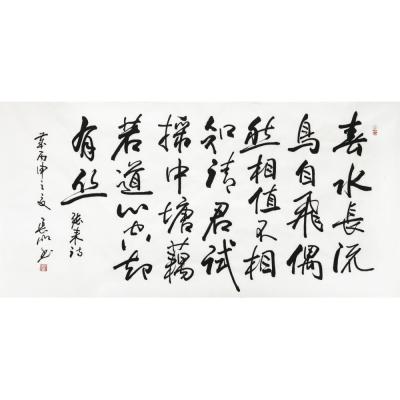 春水長流
鳥自飛偶
然相值不相
知請君試
採中塘藕
若道心空却
有丝
張耒詩
丙申之夏